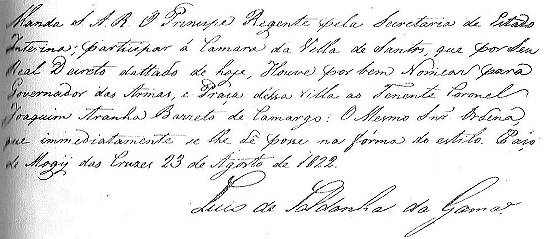 Manda S. A. R. O Principe Regente pela Secretaria de Estado
Interina, participar á Camara da Villa de Santos, que por Seu
Real Decreto dattado de hoje, Houve por bem Nomear para
Governador das Armas, e Praça dessa Villa ao Tenente Coronel
Joaquim Aranha Barreto de Camargo: O Mesmo Snr. Ordena,
que immediatamente se lhe dê posse na fórma do estilo. Paço
de Mogÿ das Cruzes 23 de Agosto de 1822.
Luis de Saldanha da Gama